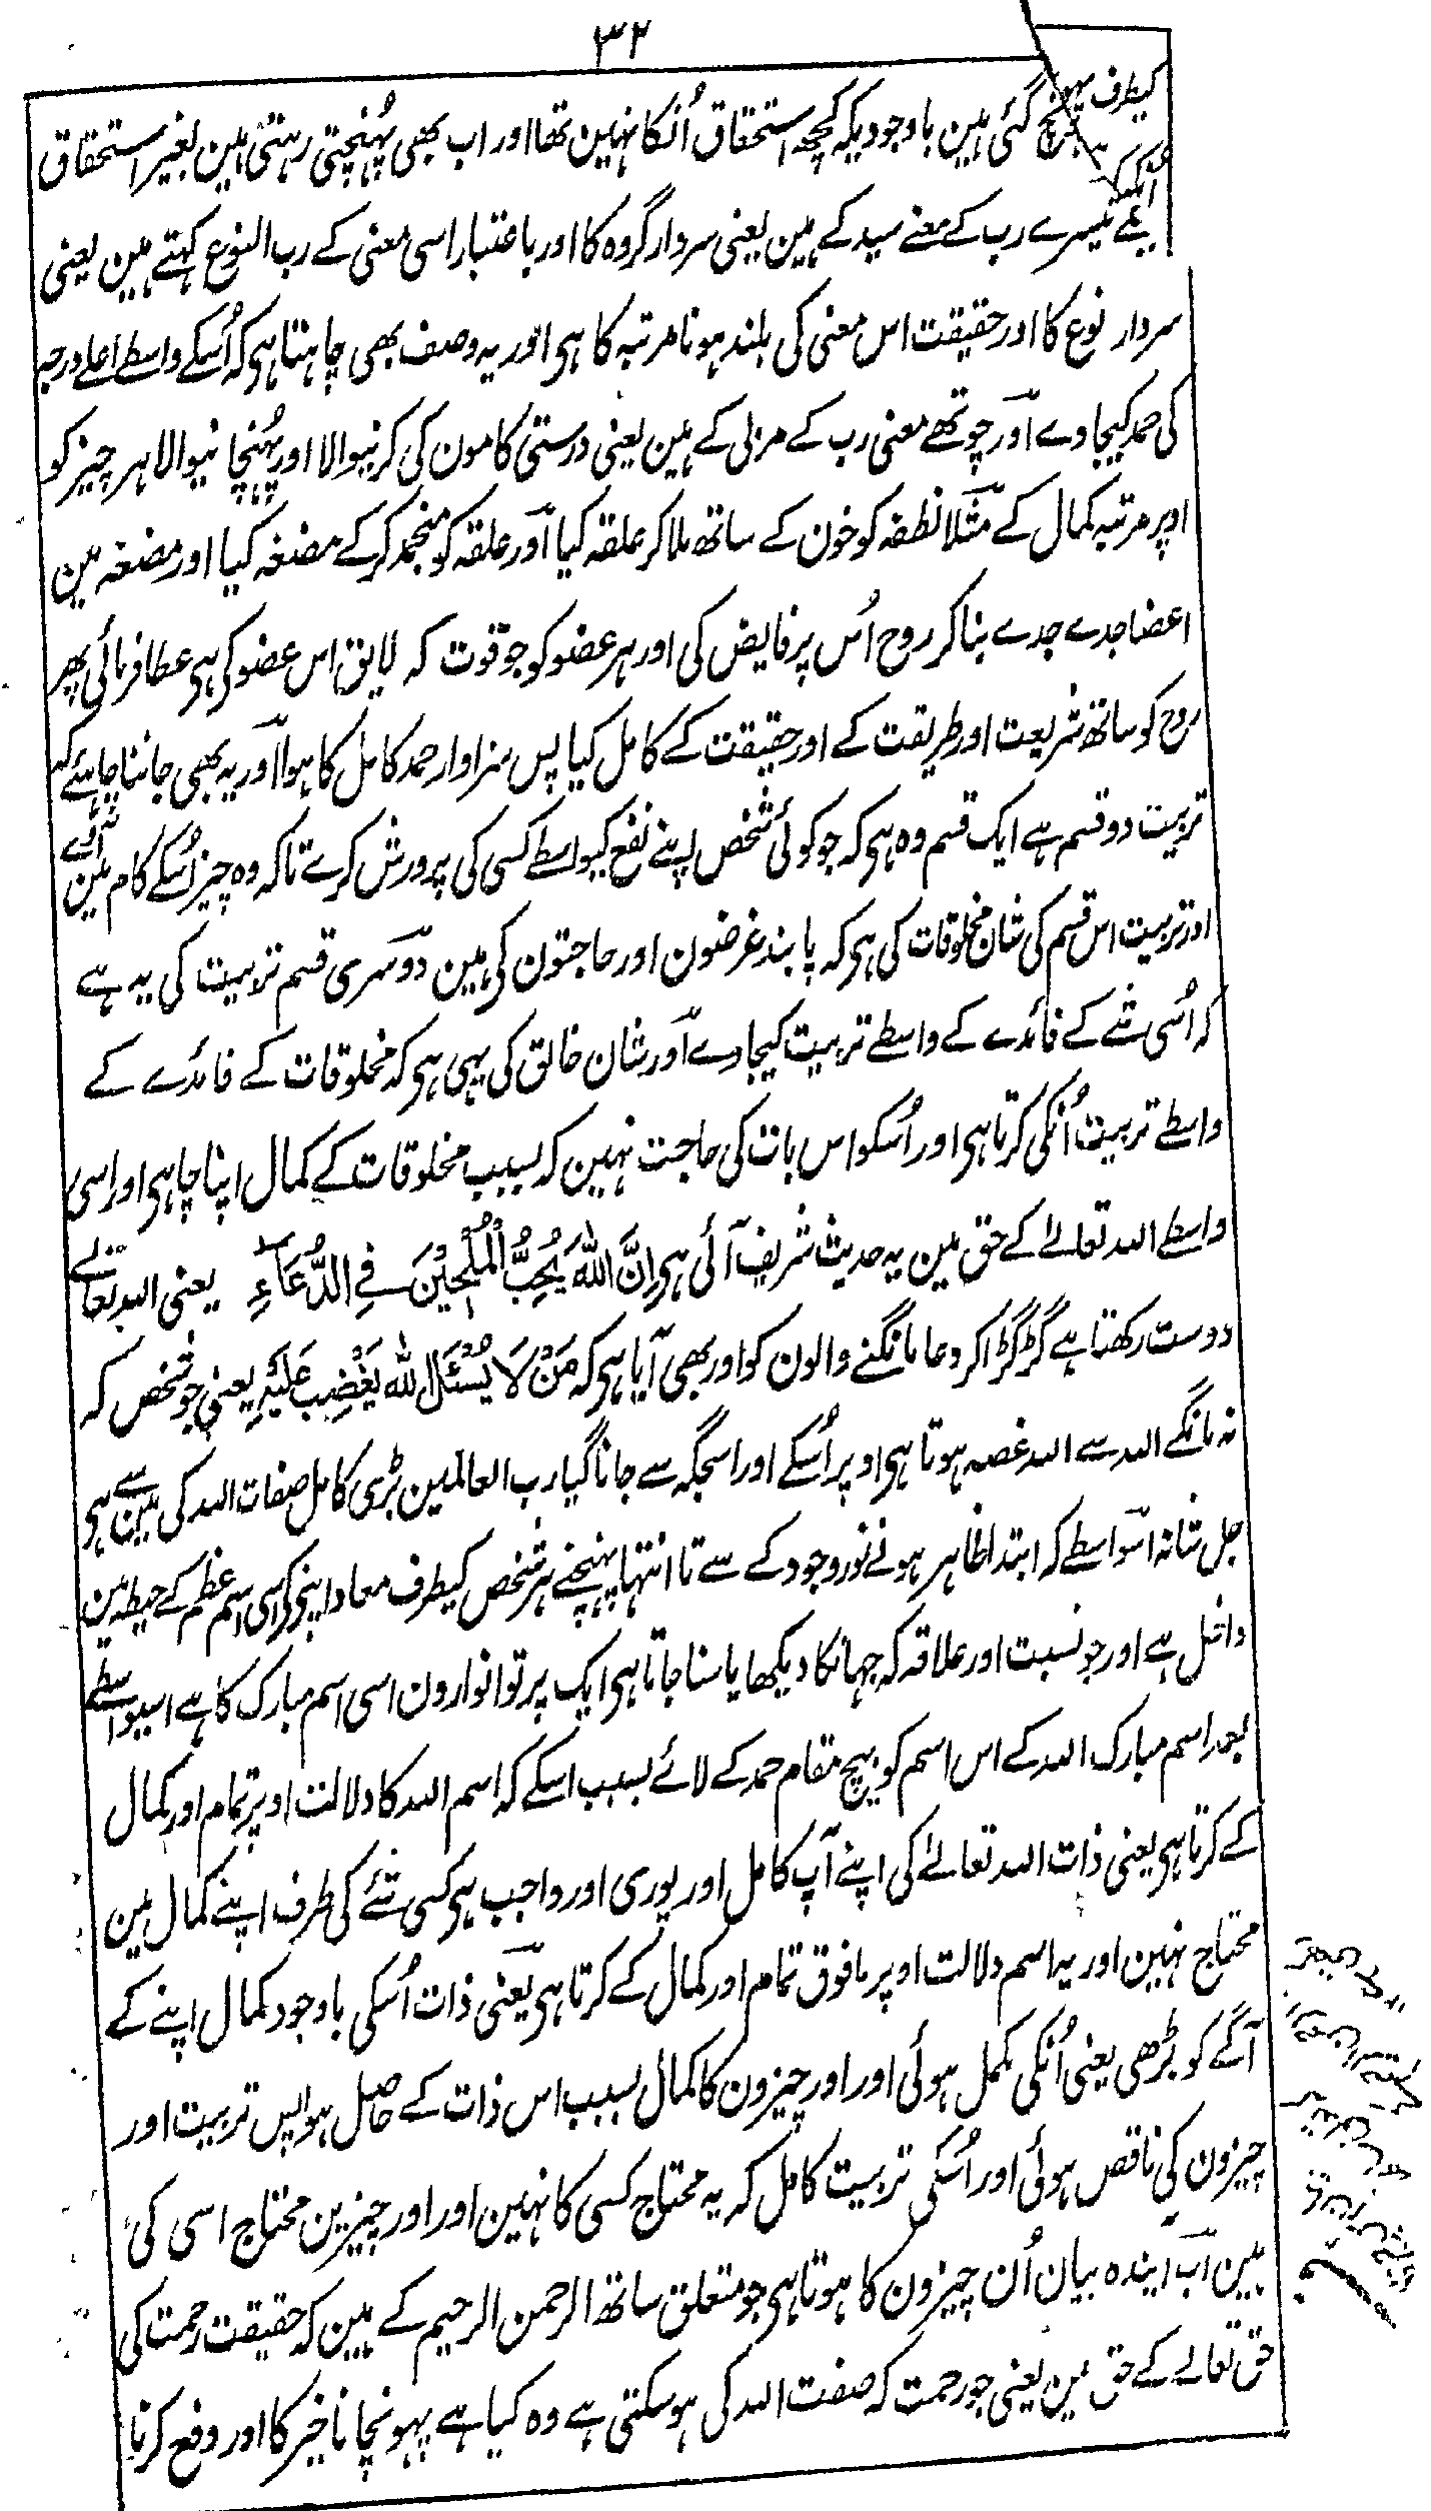 ۳۲
کیطرف پہونچ گئی ہین باوجودیکہ کچھ استحقاق اُنکا نہین تھا اور اب بھی پہُنچتی رہتی ہین بغیر استحقاق
اُنکے تیسرے رب کے معنے سید کے ہین یعنی سردار گروہ کا اور باعتبار اسی معنی کے رب النوع کہتے ہین یعنی
سردار نوع کا اور حقیقت اس معنی کی بلند ہونا مرتبہ کا ہی اور یہ وصف بھی چاہتا ہی کہ اُسکے واسطے اعلے درجہ
کی حمد کیجاوے اور چوتھے معنی رب کے مربی کے ہین یعنی درستی کامون کی کرنیوالا اور پہُنچانیوالا ہر چیز کو
اوپر مرتبہ کمال کے مثلا نطفہ کو خون کے ساتھ ملا کر علقہ کیا اور علقہ کو منجمد کرکے مضغہ کیا اور مضغہ مین
اعضا جدے جدے بنا کر روح اُس پر فایض کی اور ہر عضو کو جو قوت کہ لایق اس عضو کی ہی عطا فرمائی پھر
روح کو ساتھ شریعت اور طریقت کے اور حقیقت کے کامل کیا پس سزاوار حمد کامل کا ہوا اور یہ بھی جاننا چاہئے کہ
تربیت دو قسم ہے ایک قسم وہ ہی کہ جو کوئی شخص اپنے نفع کیواسطے کسی کی پرورش کرے تاکہ وہ چیز اُسکے کام مین آوے
اور تربیت اس قسم کی شان مخلوقات کی ہی کہ پابند غرضون اور حاجتون کی ہین دوسری قسم تربیت کی یہ ہے
کہ اُسی شے کے فائدے کے واسطے تربیت کیجاوے اور شان خالق کی یہی ہی کہ مخلوقات کے فائدے کے
واسطے تربیت اُنکی کرتا ہی اور اُسکو اس بات کی حاجت نہین کہ بسبب مخلوقات کے کمال اپنا چاہی اور اسی
واسطے اللہ تعالےٰ کے حق مین یہ حدیث شریف آئی ہی اِنَّ اللهَ یُحِبُّ الْمُلِحِّیْنَ فِے الدُّعَآءِ یعنی اللہ تعالے
دوست رکھتا ہے گڑگڑا کر دعا مانگنے والون کو اور بھی آیا ہی کہ مَنْ لَا یُسْئَلِ الله یَغْضِب عَلَیْهِ یعنی جو شخص کہ
نہ مانگے اللہ سے اللہ غصہ ہوتا ہی اوپر اُسکے اور اسجگہ سے جانا گیا رب العالمین بڑی کامل صفات اللہ کی مین سے ہی
جل شانہ اسواسطے کہ ابتدا ظاہر ہونے نور وجود کے سے تا انتہا پہنچنے ہر شخص کیطرف معاد اپنی کی اسی اسم اعظم کے حیطہ مین
داخل ہے اور جو نسبت اور علاقہ کہ جہانکا دیکھا یا سنا جاتا ہی ایک پرتو انوارون اسی اسم مبارک کا ہے اسیواسطے
بعد اسم مبارک اللہ کے اس اسم کو بیچ مقام حمد کے لائے بسبب اسکے کہ اسم اللہ کا دلالت اوپر تمام اور کمال
کے کرتا ہی یعنی ذات اللہ تعالےٰ کی اپنے آپ کامل اور پوری اور واجب ہی کسی شئے کی طرف اپنے کمال مین
محتاج نہین اور یہ اسم دلالت اوپر مافوق تمام اور کمال کے کرتا ہی یعنی ذات اُسکی باوجود کمال اپنے کے
آگے کو بڑھی یعنی اُنکی مکمل ہوئی اور اور چیزون کا کمال بسبب اس ذات کے حاصل ہوا پس تربیت اور
چیزون کی ناقص ہوئی اور اُسکی تربیت کامل کہ یہ محتاج کسی کا نہین اور اور چیزین محتاج اسی کی
ہین اب آیندہ بیان اُن چیزون کا ہوتا ہی جو متعلق ساتھ الرحمن الرحیم کے ہین کہ حقیقت رحمت کی
حق تعالے کے حق مین یعنی جو رحمت کہ صفت اللہ کی ہو سکتی ہے وہ کیا ہے پہونچانا خیر کا اور دفع کرنا